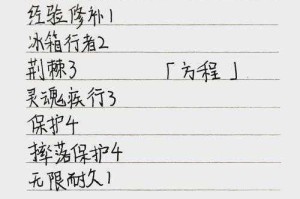 经验修补1
冰箱行者2
荆棘3 「方程」
灵魂疾行3
保护4
摔落保护4
无限耐久1